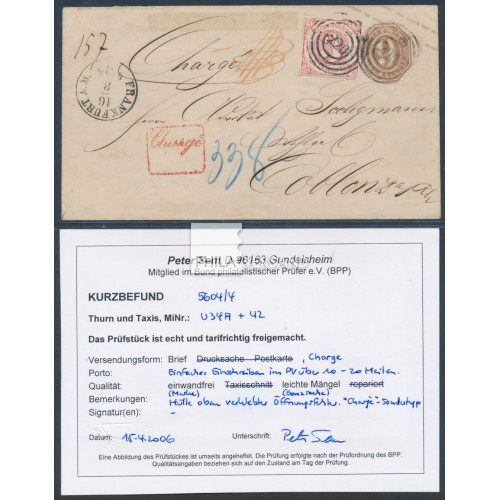 157
Chargé
FRANKFURT A.M.
16
8
Herrn
Chargé
338
Coblenz
PHILA
Peter D-96163 Gundelsheim
Mitglied im Bund philatelistischer Prüfer e.V. (BPP)
KURZBEFUND 5604/4
Thurn und Taxis, MiNr.: U34A + 42
Das Prüfstück ist echt und tarifrichtig freigemacht.
Versendungsform: Brief Drucksache Postkarte, Charge
Porto: Einfaches Einschreiben im PV über 10 - 20 Meilen.
Qualität: einwandfrei (Marke) Taxisschnitt leichte Mängel (Ganzsache) repariert
Bemerkungen: Hülle oben verklebter Öffnungsfehler. "Chargé"-Sondertyp
Signatur(en): -
Datum: 18.4.2006 Unterschrift:
Eine Abbildung des Prüfstückes ist umseits angeheftet. Die Prüfung erfolgte nach der Prüfordnung des BPP.
Qualitätsangaben beziehen sich auf den Zustand am Tag der Prüfung.